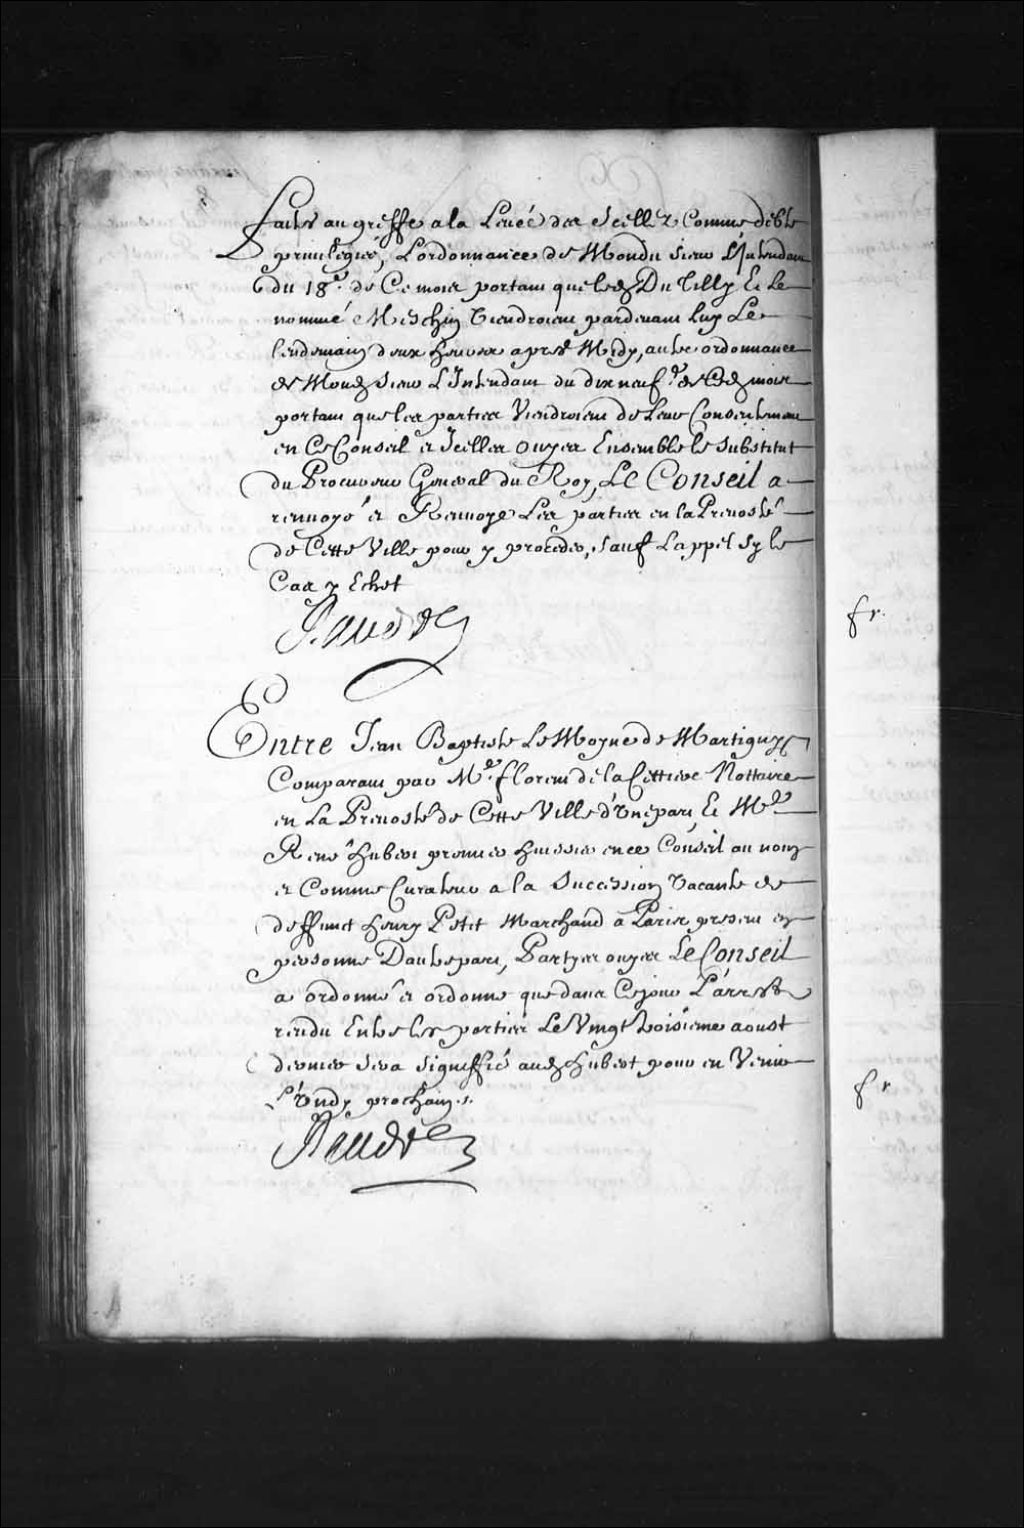 faites au greffe a la Levée des Scellez Comme debte
privilegiée, L'ordonnance de Mondit sieur L'Intendant
du 18e. de Ce mois portant que led Du Tilly Et Le
nommé Meschin Viendroient pardevant luy Le
lendemain deux heures apres Midy, autre ordonnance
de Mond sieur L'Intendant du dix neufe. de Ced mois
portant que les parties Viendroient de Leur Consentement
en Ce Conseil et Icelles ouyes Ensemble le substitut
du Procureur General du Roy, Le Conseil a
renvoyé et Renvoye Les parties en la Prevosté
de Cette Ville pour y proceder, sauf L'appel Sy le
Cas y Echet

Entre Jean Baptiste Le Moyne de Martigny
Comparant par Me. florent de la Cettiere Nottaire
en La Prevosté de Cette Ville d'Une part, Et Me
René hubert premier huissier en ce Conseil au nom
et Comme Curateur a la Succession Vacante de
deffunct henry Petit Marchand a Paris present en
personne D'autre part, Partyes ouyes Le Conseil
a ordonné et ordonne que dans Ce jour L'arrest
rendu Entre les parties Le Vingt troisieme aoust
dernier sera Signiffié aud hubert pour en Venir
L'undy prochain./.
fr.
fr